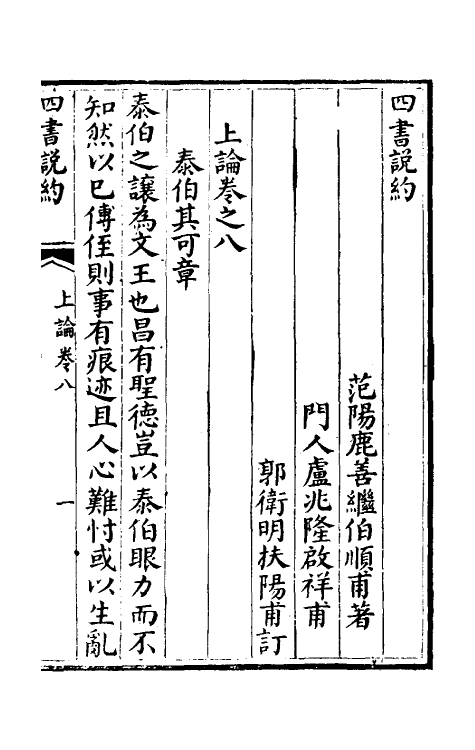 四書説約
范陽鹿善繼伯順甫著
門人盧兆隆啟祥甫
郭衛明扶陽甫訂
上論卷之八
泰伯其可章
泰伯之讓為文王也昌有聖德豈以泰伯眼力而不
知然以已傳侄則事有痕迹且人心難忖或以生亂
四書説約
上論卷八
一